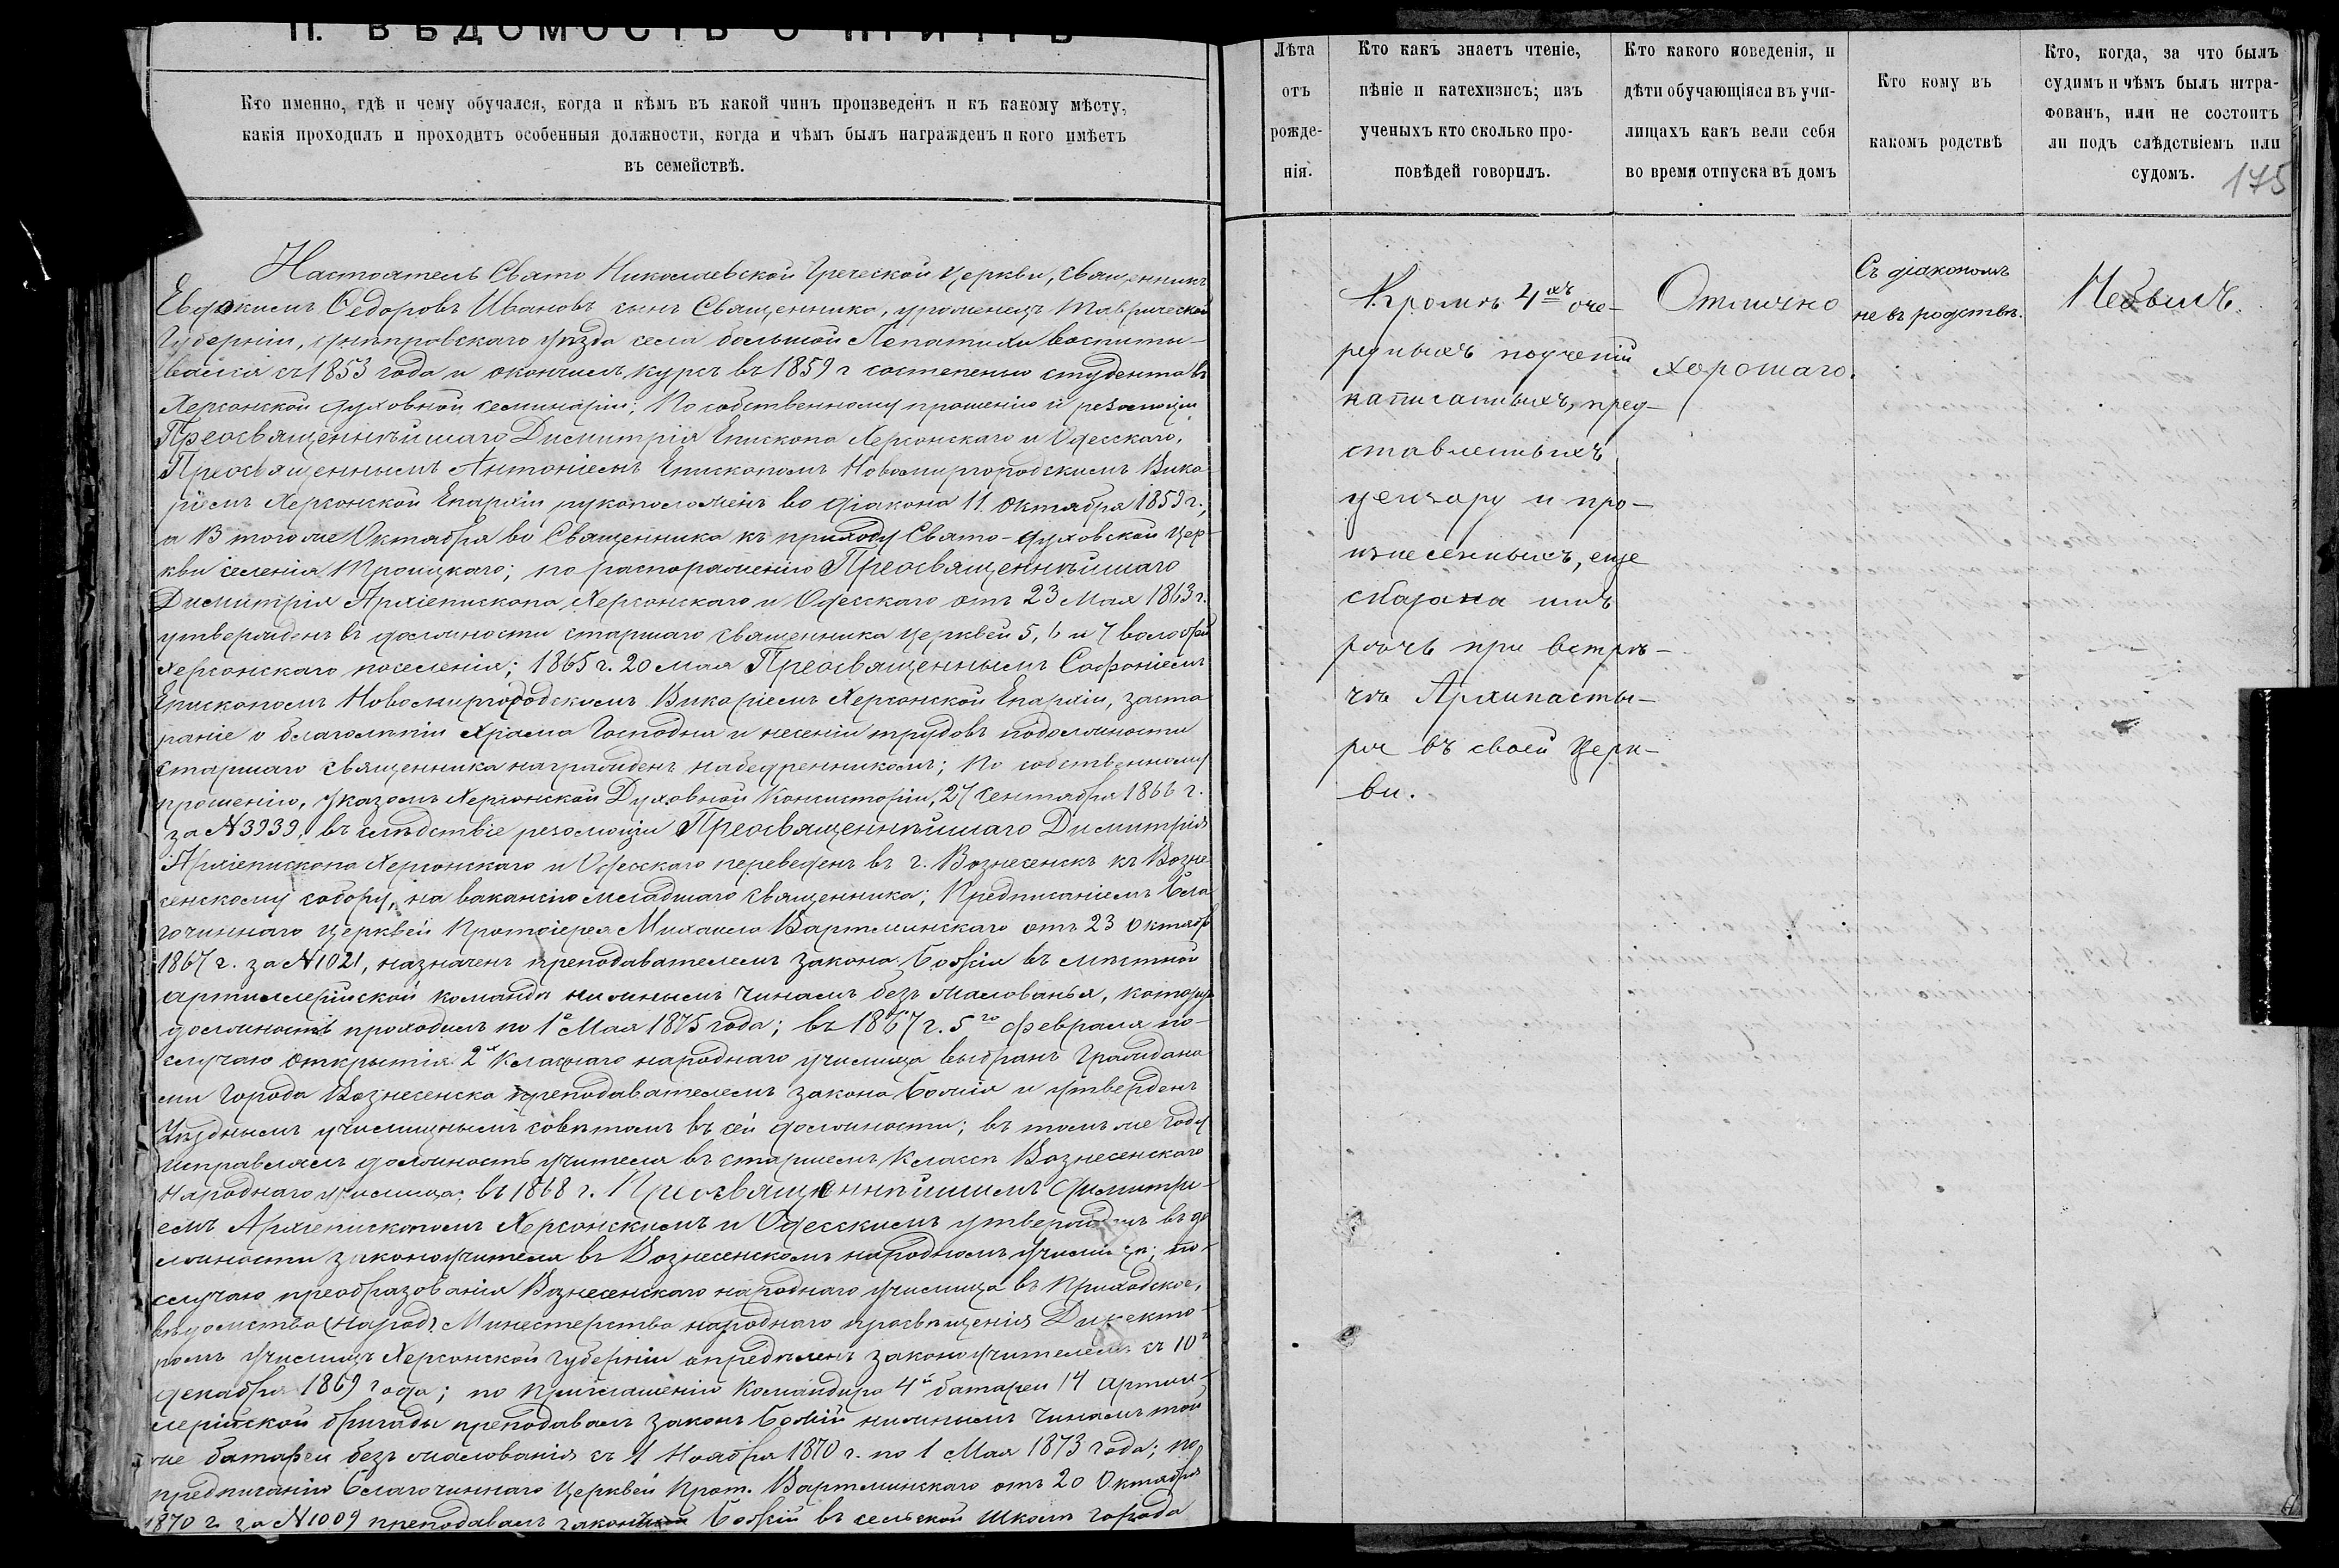 II. ВѢДОМОСТЬ О ПРИЧТѢ
Кто именно, гдѣ и чему обучался, когда и кѣмъ въ какой чинъ произведенъ и къ какому мѣсту,
какія проходилъ и проходитъ особенныя должности, когда и чѣмъ былъ награжденъ и кого имѣетъ
въ семействѣ.
Настоятель Свято Николаевской Греческой церкви, священникъ
Евдокимъ Ѳедоровъ Ивановъ сынъ Священника, уроженецъ Таврической
Губерніи, Днѣпровскаго уѣзда села большой Лепатихи воспиты-
вался съ 1853 года и окончилъ курсъ въ 1859 г состепенью студента въ
Херсонской духовной семинаріи; По собственному прошенію и резолюціи
Преосвященнѣйшаго Димитрія Епископа Херсонскаго и Одесскаго,
Преосвященнымъ Антоніемъ Епископомъ Новомиргородскимъ Вика-
ріемъ Херсонской Епархіи рукоположенъ во діакона 11 октября 1859 г.,
а 13 того же Октября во Священника къ приходу Свято-Духовской Цер-
кви селенія Троицкаго; по распоряженію Преосвященнѣйшаго
Димитрія Архіепископа Херсонскаго и Одесскаго отъ 23 Мая 1863 г.
утвержденъ въ должности старшаго священника церквей 5, 6 и 7 волостей
Херсонскаго поселенія; 1865 г. 20 мая Преосвященнымъ Софоніемъ
Епископомъ Новомиргородскимъ Викаріемъ Херсонской Епархіи, заста-
раніе о благолѣпіи Храма Господня и несеніи трудовъ подолжности
старшаго священника награжденъ набедренникомъ; По собственному
прошенію, указомъ Херсонской Духовной Консисторіи, 27 сентября 1866 г.
за № 3939, въ слѣдствіе резолюціи Преосвященнѣйшаго Димитрія
Архіепископа Херсонскаго и Одесскаго переведенъ въ г. Вознесенскъ къ Возне-
сенскому собору, на вакансію младшаго священника; Предписаніемъ Бла-
гочиннаго Церквей Протоіерея Михаила Вартминскаго отъ 23 Октября
1867 г. за № 1021, назначенъ преподавателемъ закона Божія въ мѣстной
артиллерійской команды нижнымъ чинамъ безъ жалованья, которую
должность проходилъ по 1е Мая 1875 года; въ 1867 г. 5го февраля по-
случаю открытія 2х класнаго народнаго училища выбранъ гражданa-
ми города Вознесенска преподавателемъ закона Божія и утверденъ
Уѣзднымъ училищнымъ совѣтомъ въ сей должности; въ томъ же году
исправлялъ должность учителя въ старшемъ классѣ Вознесенскаго
Народнаго училища; въ 1868 г. Преосвященнѣйшимъ Димитрі-
емъ Архіепископомъ Херсонскимъ и Одесскимъ утвержденъ въ до-
лжности законоучителя въ Вознесенскомъ народномъ училищѣ; по-
случаю преобразованія Вознесенскаго народнаго училища въ Приходское,
вѣдомства (Народ) Министерства народнаго просвѣщенія Директо-
ромъ училищъ Херсонской Губерніи опредѣленъ законоучителемъ съ 10го
декабря 1869 года; по приглашенію Командира 4й батареи 14 артил-
лерійской бригады преподавалъ законъ Божій нижнымъ чинамъ той
же батареи безъ жалованія съ 1 Ноября 1870 г. по 1 Мая 1873 года; по
предписанію Благочиннаго Церквей Прот. Вартминскаго отъ 20 Октября
1870 г. за № 1009 преподавалъ законъ Божій въ сельской школѣ города
Лѣта
отъ
рожде-
нія.
Кто какъ знаетъ чтеніе,
пѣніе и катехизисъ; изъ
ученыхъ кто сколько про-
повѣдей говорилъ.
Кто какого поведенія, и
дѣти обучающіяся въ учи-
лищахъ какъ вели себя
во время отпуска въ домъ
Кто кому въ
какомъ родствѣ
Кто, когда, за что былъ
судимъ и чѣмъ былъ штра-
фованъ, или не состоитъ
ли подъ слѣдствіемъ или
судомъ.
175
Кромѣ 4хъ оче-
редныхъ поученій
написанныхъ, пред-
ставленныхъ
цензору и про-
изнесенныхъ, еще
сказана имъ
рѣчь при встрѣ-
чѣ Архипасты-
ря въ своей Церк-
ви.
Отлично
хорошаго.
Съ діакономъ
не въ родствѣ.
Небылъ.